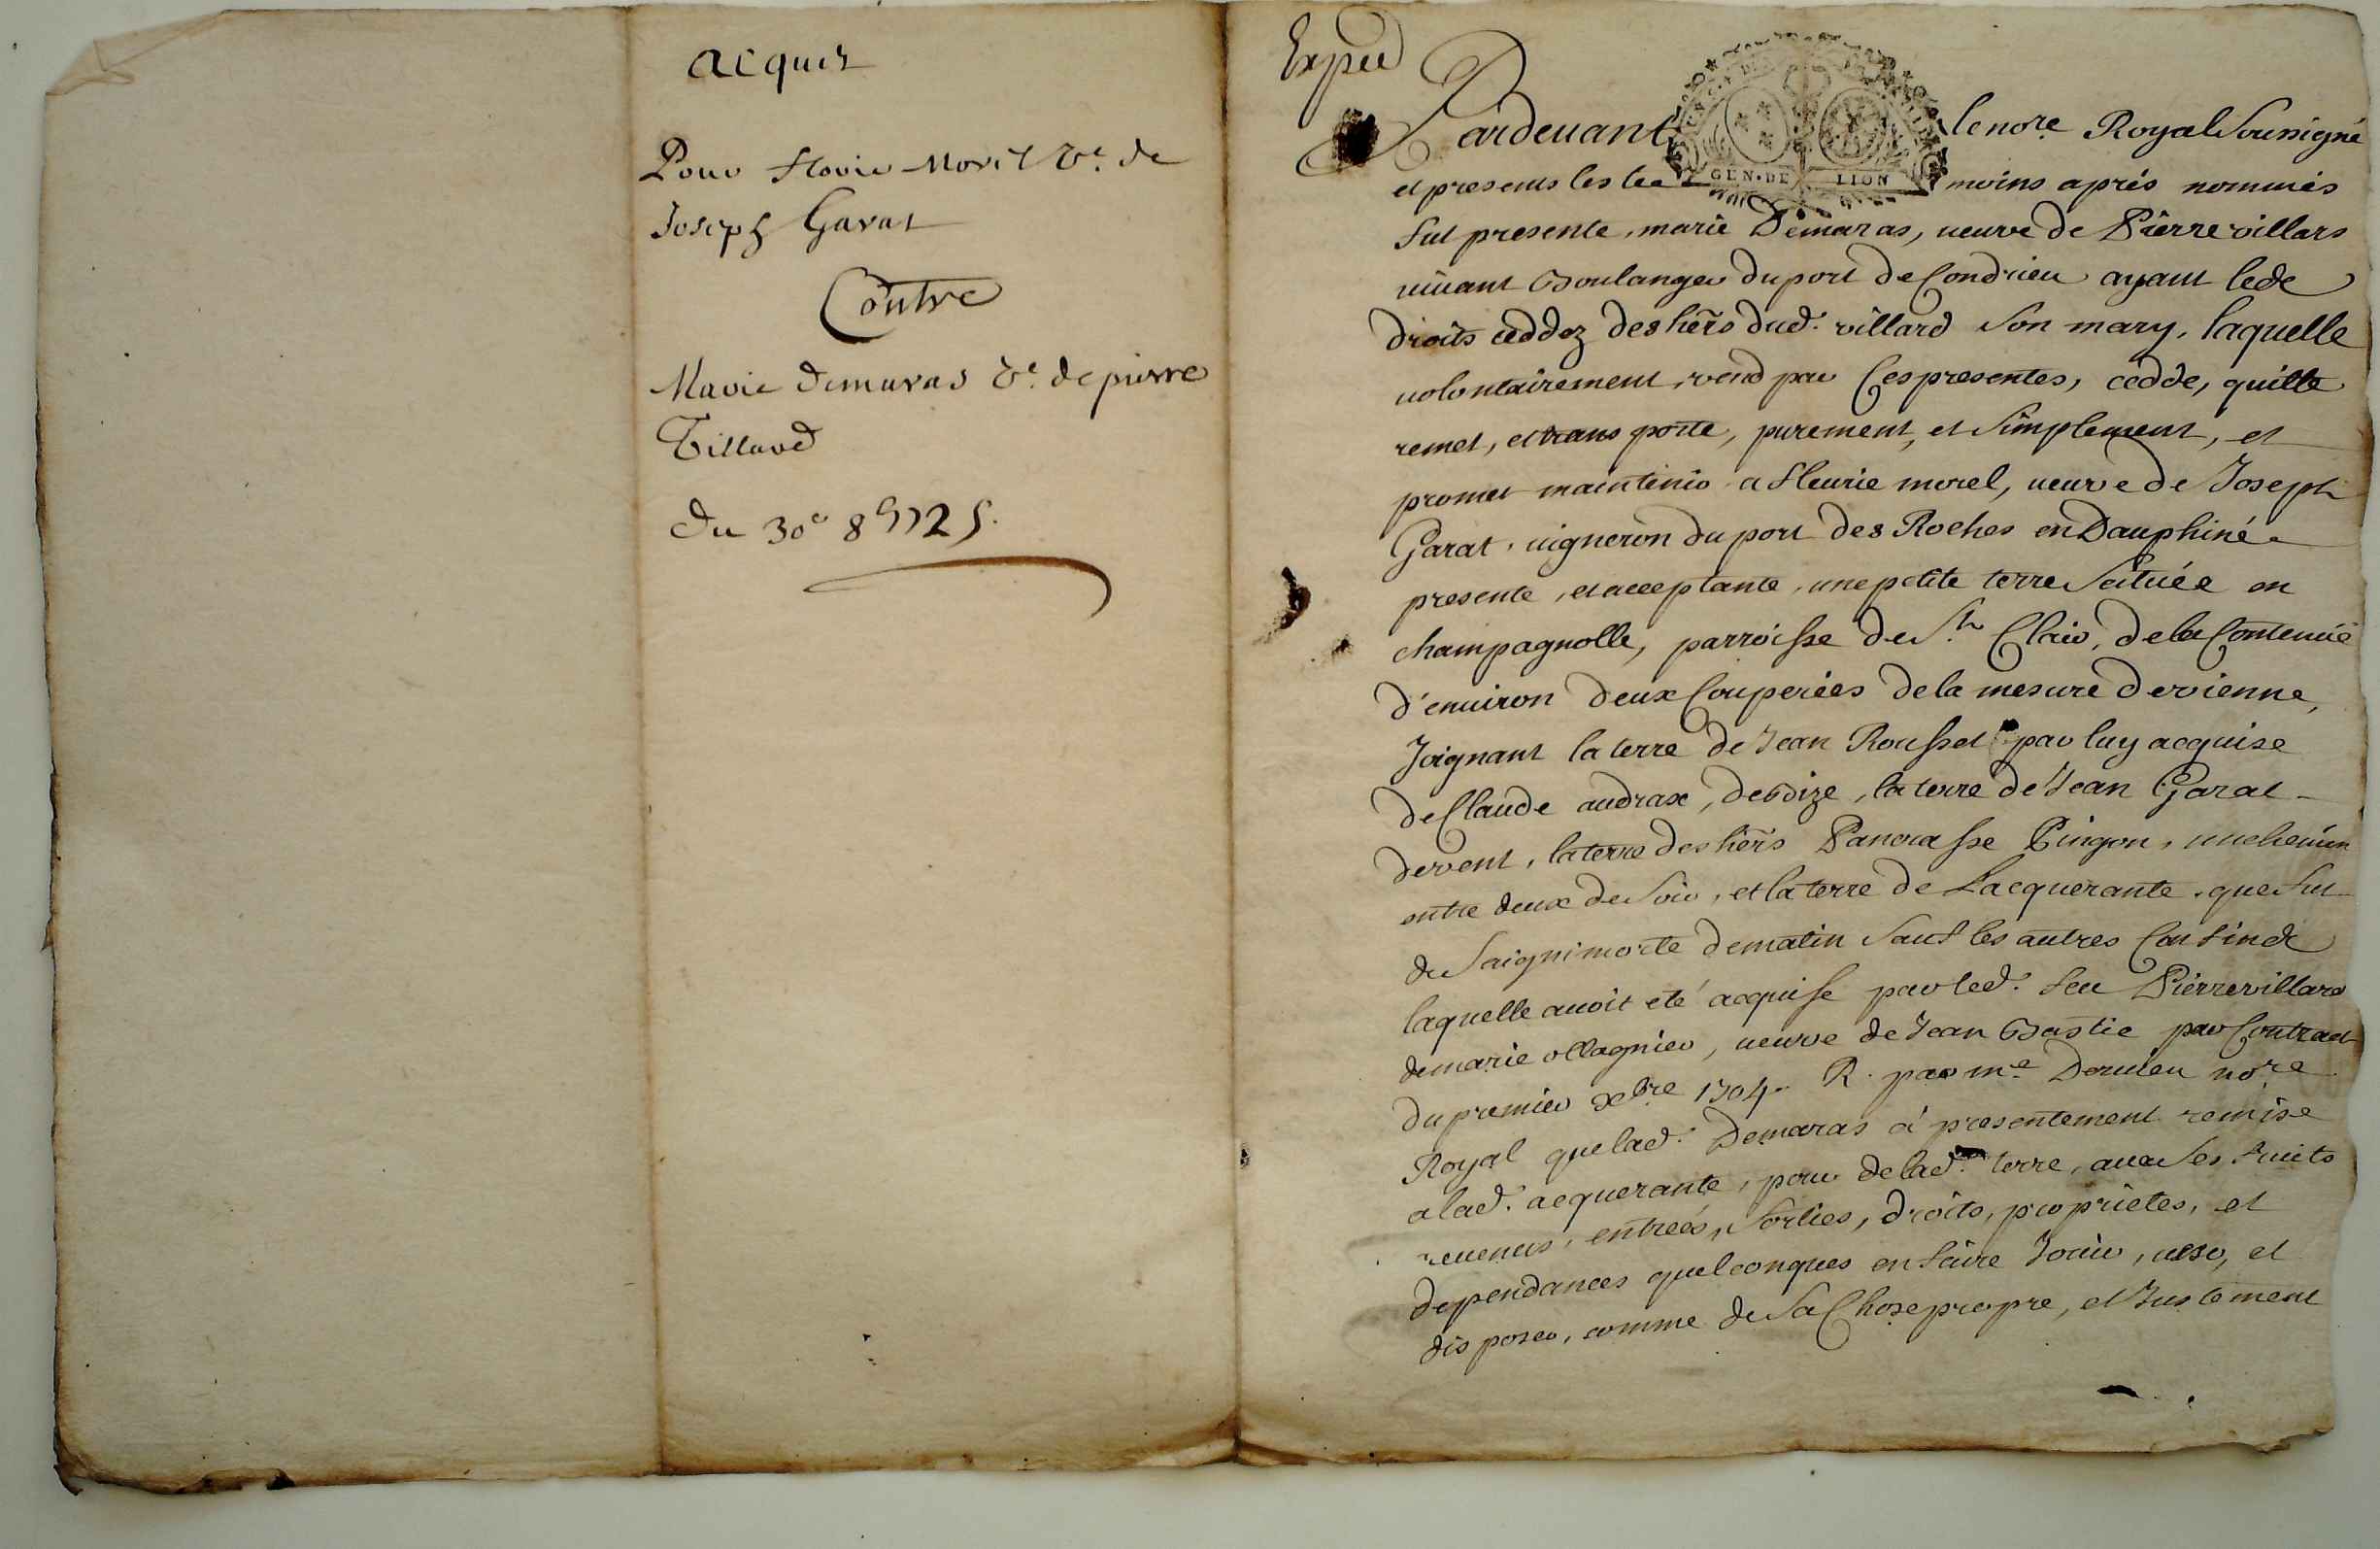 acquis
Pour Florie Morel Ve. de
Joseph Garat
Contre
Marie Demaras Ve. de pierre
Villard
Du 30e 8bre 1725.
Exped
Pardeuant le nore Royal Soussigné
GEN. DE LION
et presents les temoins aprés nommés
fut presente, marie Demaras, ueuve de Pierre villars
uiuant Boulanger du port de Condrieu ayant le de
droits ceddez des hers dud. villard Son mary, laquelle
uolontairement, vend par Ces presentes, cedde, quitte
remet, et transporte, purement, et Simplement, et
promet maintenir a fleurie morel, ueuve de Joseph
Garat, uigneron du port des Roches en Dauphiné
presente, et acceptante, une petite terre Scituée en
champagnolle, parroisse de St Clair, de la Contenüe
d'enuiron deux Couperées de la mesure de vienne,
Joignant la terre de Jean Rousset par luy acquise
de Claude audrax, de bize, la terre de Jean Garat
de vent, la terre des hers Pancrasse Pingon, un chemin
entre deux de Soir, et la terre de Lacquerante, que fut
de Saignimorte de matin Sauf les autres Confins &
laquelle auoit eté acquise par led. feu Pierre villard
de marie ollagnier, ueuve de Jean Bastie par Contract
du premier xbre 1704. R. par me Derulen nore
Royal que lad. Demaras á presentement remise
a lad. acquerante, pour de lad. terre, auec Ses fruits
reuenus, entreés, Sorties, droits, proprietes, et
dependances quelconques en faire Jouir, user, et
disposer, comme de Sa Chose propre, et Justement